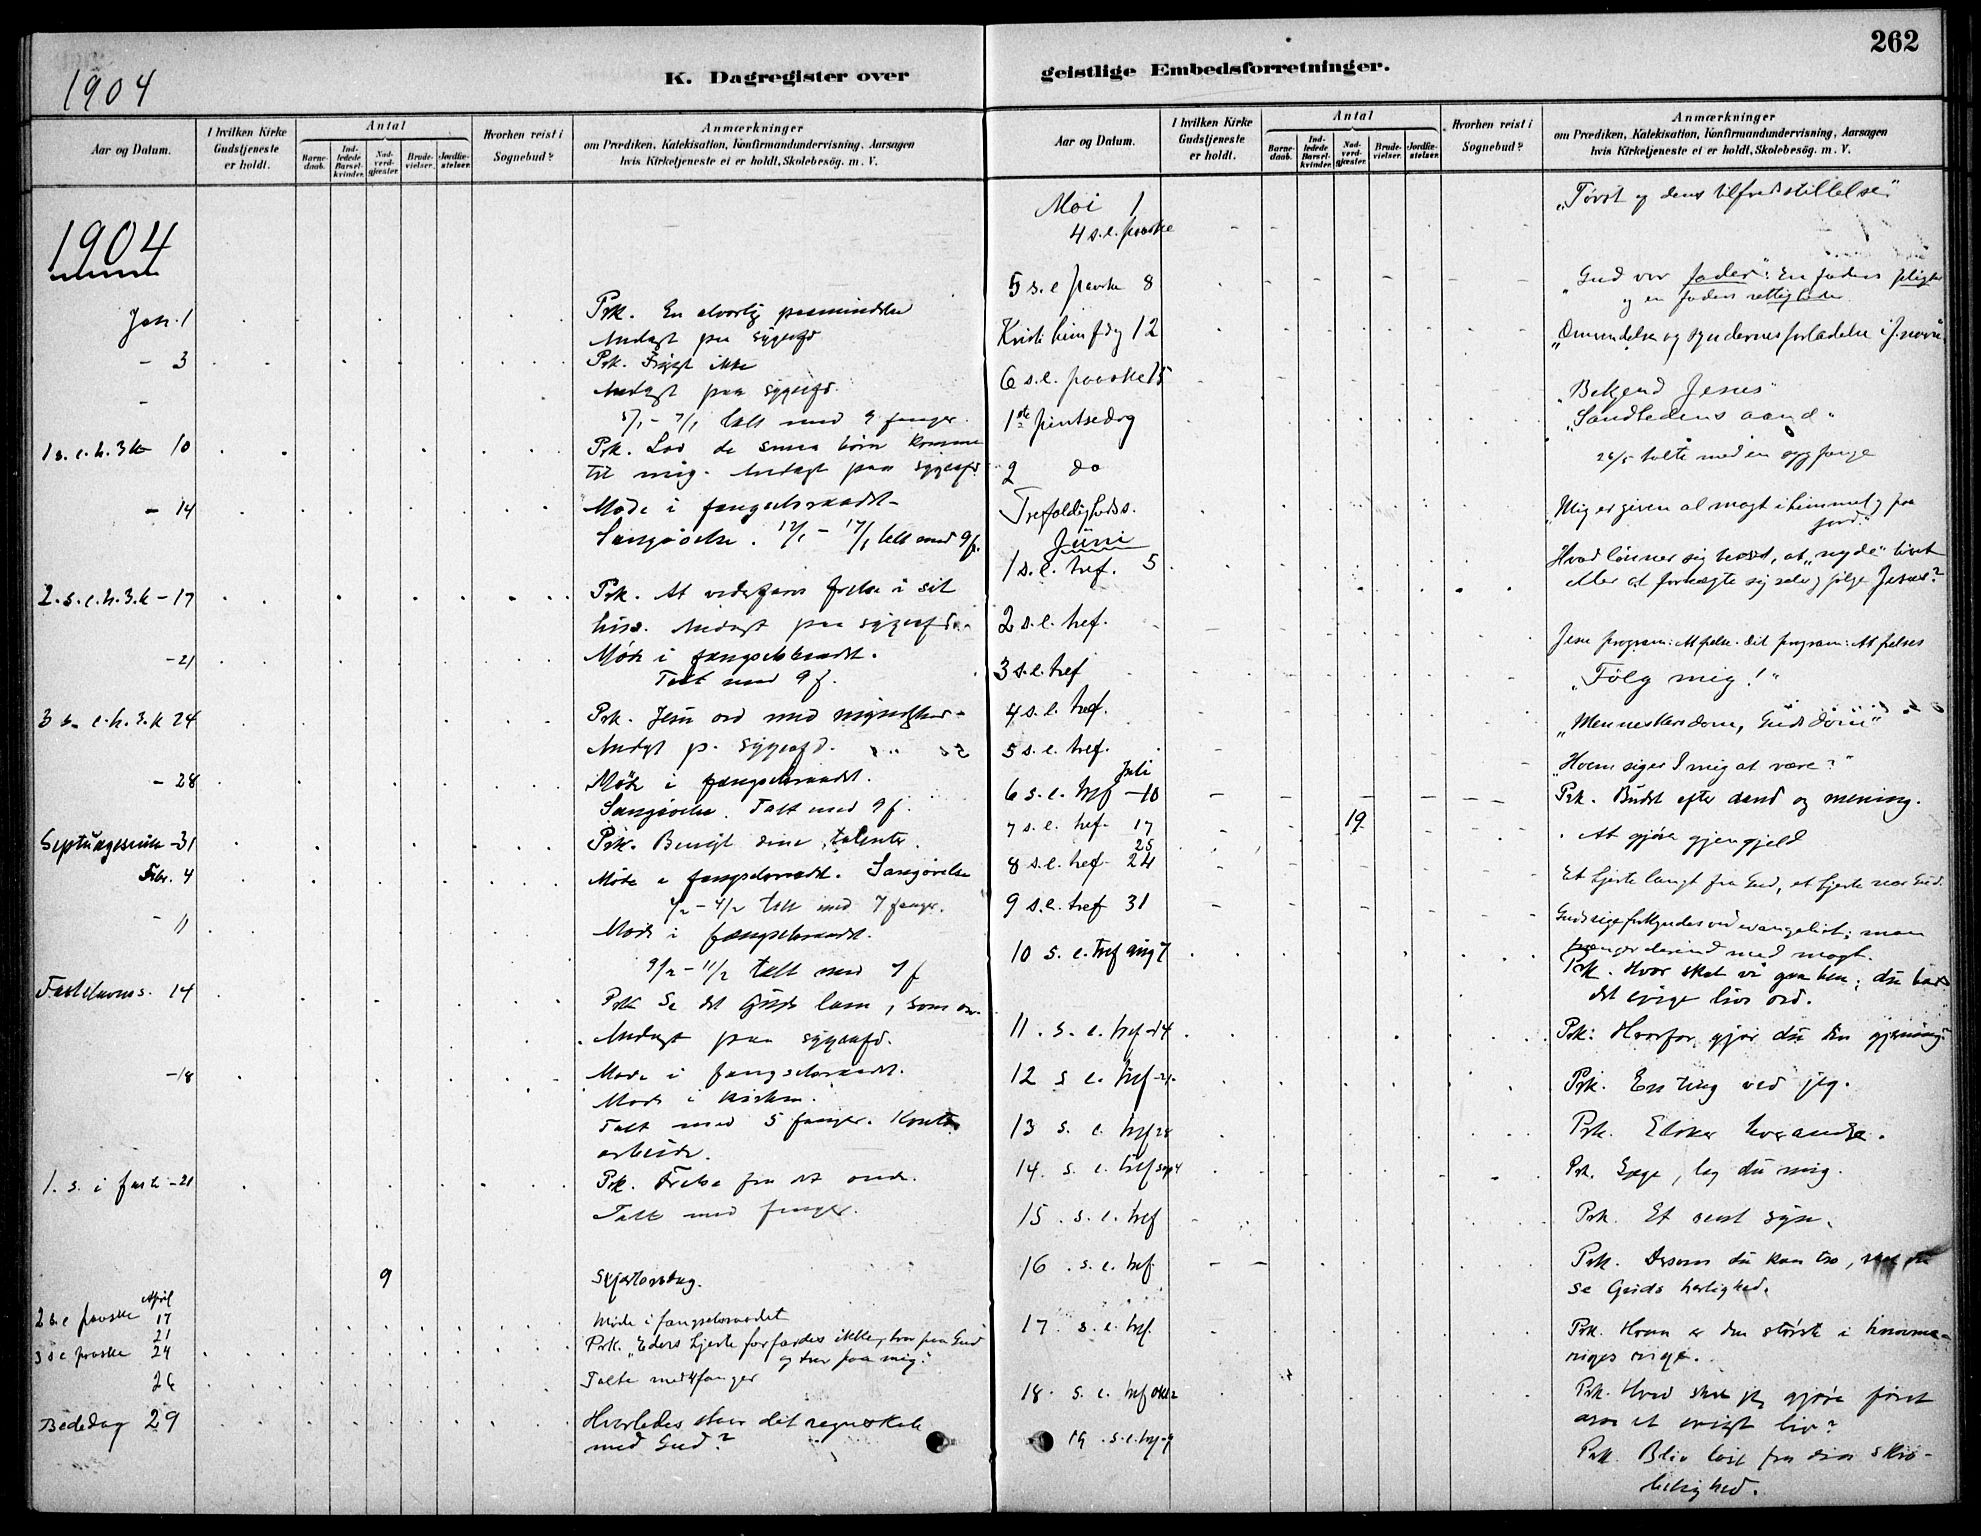 262
1904
K. Dagregister over
geistlige Embedsforretninger.
Aar og Datum.
I hvilken Kirke Gudstjeneste er holdt.
Antal
Barne-daab.
Ind-ledede Barsel-kvinder.
Nad-verd-gjæster.
Brude-vielser.
Jordfæ-stelser.
Hvorhen reist i Sognebud?
Anmærkninger
om Prædiken, Katekisation, Konfirmandundervisning, Aarsagen
hvis Kirketjeneste ei er holdt, Skolebesög. m. V.
1904
Jan. 1
Prk. En alvorlig paamindelse
Andagt paa sygeafd
- 3
Prk. Frygt ikke
Andagt paa sygeafd.
5/1 - 7/1 talt med 9 fanger.
1 s. e. h. 3 k 10
Prk. Lad de smaa børn komme
til mig. Andagt paa sygeafd
- 14
Møde i fængselsraadet
Sangøvelse. 12/1 - 17/1 talt med 9 f.
2. s. e. h. 3. k - 17
Prk. At frelse i sit
hus. Andagt paa sygeafd.
- 21
Møde i fængselsraadet.
Talt med 9 f.
3 s. e. h. 3. k 24
Prk. Jesu ord med myndighed
Andagt p. sygeafd.
- 28
Møde i fængselsraadet.
Sangøvelse. Talt med 9 f.
Septuagesima - 31
Prk. Benyt dine talenter.
Febr. 4
Møde i fængselsraadet. Sangøvelse
talt med 7 fanger.
- 11
Møde i fængselsraadet.
9/2 - 11/2 talt med 7 f
Fastelavns s. 14
Prk Se det Guds lam, som
Andagt paa sygeafd.
- 18
Møde i fængselsraadet.
Møde i
Talt med 5 fanger. Kontor
arbeide.
1. s. i faste - 21
Prk. Frelse fra det onde.
Talt med fanger.
9
Skjærtorsdag.
April
2 s. e paaske 17
21
Møde i fængselsraadet
3 s e paaske 24
Prk. "Eders hjerte forfærdes ikke, tror paa Gud
og tror paa mig."
26
Talte med 4 fanger
Bededag 29
Hvorledes staar dit regnskab
med Gud?
Aar og Datum.
I hvilken Kirke Gudstjeneste er holdt.
Antal
Barne-daab.
Ind-ledede Barsel-kvinder.
Nad-verd-gjæster.
Brude-vielser.
Jordfæ-stelser.
Hvorhen reist i Sognebud?
Anmærkninger
om Prædiken, Katekisation, Konfirmandundervisning, Aarsagen
hvis Kirketjeneste ei er holdt, Skolebesög. m. V.
Mai 1
4 s. e. paaske
"Tørst og dens tilfredsstillelse"
5 s. e paaske 8
"Gud vor fader": En faders pligter
og en faders rettigheder
Kristi himfdg 12
"Omvendelse og syndernes forladelse i J. navn"
6 s. e. paaske 15
"Bekjend Jesus"
1ste pintsedag
"Sandhedens aand"
2 do
26/5 talte med en syg fange
Trefoldigheds s.
"Mig er given al magt i himmel og paa
jord."
Juni
1 s. e. tref. 5
Hvad lønner sig bedst, at "nyde" livet
eller at fornægte sig selv og følge Jesus?
2 s. e. tref.
Jesu program: At frelse. dit program: At frelses
3 s. e. tref
"Følg mig!"
4 s. e. tref.
"Menneskers dom, Guds dom"
5 s. e. tref.
"Hvem siger I mig at være?"
Juli
6 s. e. tref - 10
Prk. Budet efter aand og mening.
7 s. e. tref. 17
19
At gjøre gjengjeld
25
8 s. e. tref - 24
Et hjerte langt fra Gud, et hjerte nær Gud.
9 s. e. tref 31
Guds rige forkyndes ved evangeliet; man
trænger derind med magt.
10 s. e. tref aug 7
Prk. Hvor skal vi gaa hen; du har
det evige livs ord.
11. s. e. tref - 14
Prk: Hvorfor gjør du din gjerning
12 s e. tref - 21
Prk. En ting ved jeg.
13 s. e. tref 28
Prk. Elsker hverandre.
14. s. e. tref sep 4
Prk. Sæge, lag du mig.
15. s. e. tref
Prk. Et sent syn.
16. s. e. tref.
Prk. Dersom du kan tro, skal du
se Guds herlighed.
17. s. e. tref.
Prk. Hvem er den største i himme-
riges rige.
18. s. e. tref okt 2
Prk. Hvad skal jeg gjøre foret
arve et evigt liv?
19. s. e. tref - 9
Prk. Bliv løst fra din skrø-
belighed.